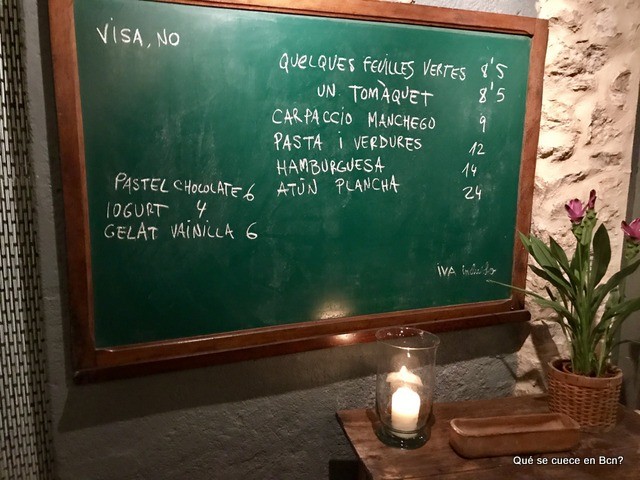 VISA, NO
QUELQUES FEUILLES VERTES 8'5
UN TOMÀQUET 8'5
CARPACCIO MANCHEGO 9
PASTA i VERDURES 12
HAMBURGUESA 14
ATÚN PLANCHA 24
PASTEL CHOCOLATE 6
IOGURT 4
GELAT VAINILLA 6
iVA incluido
Qué se cuece en Bcn?